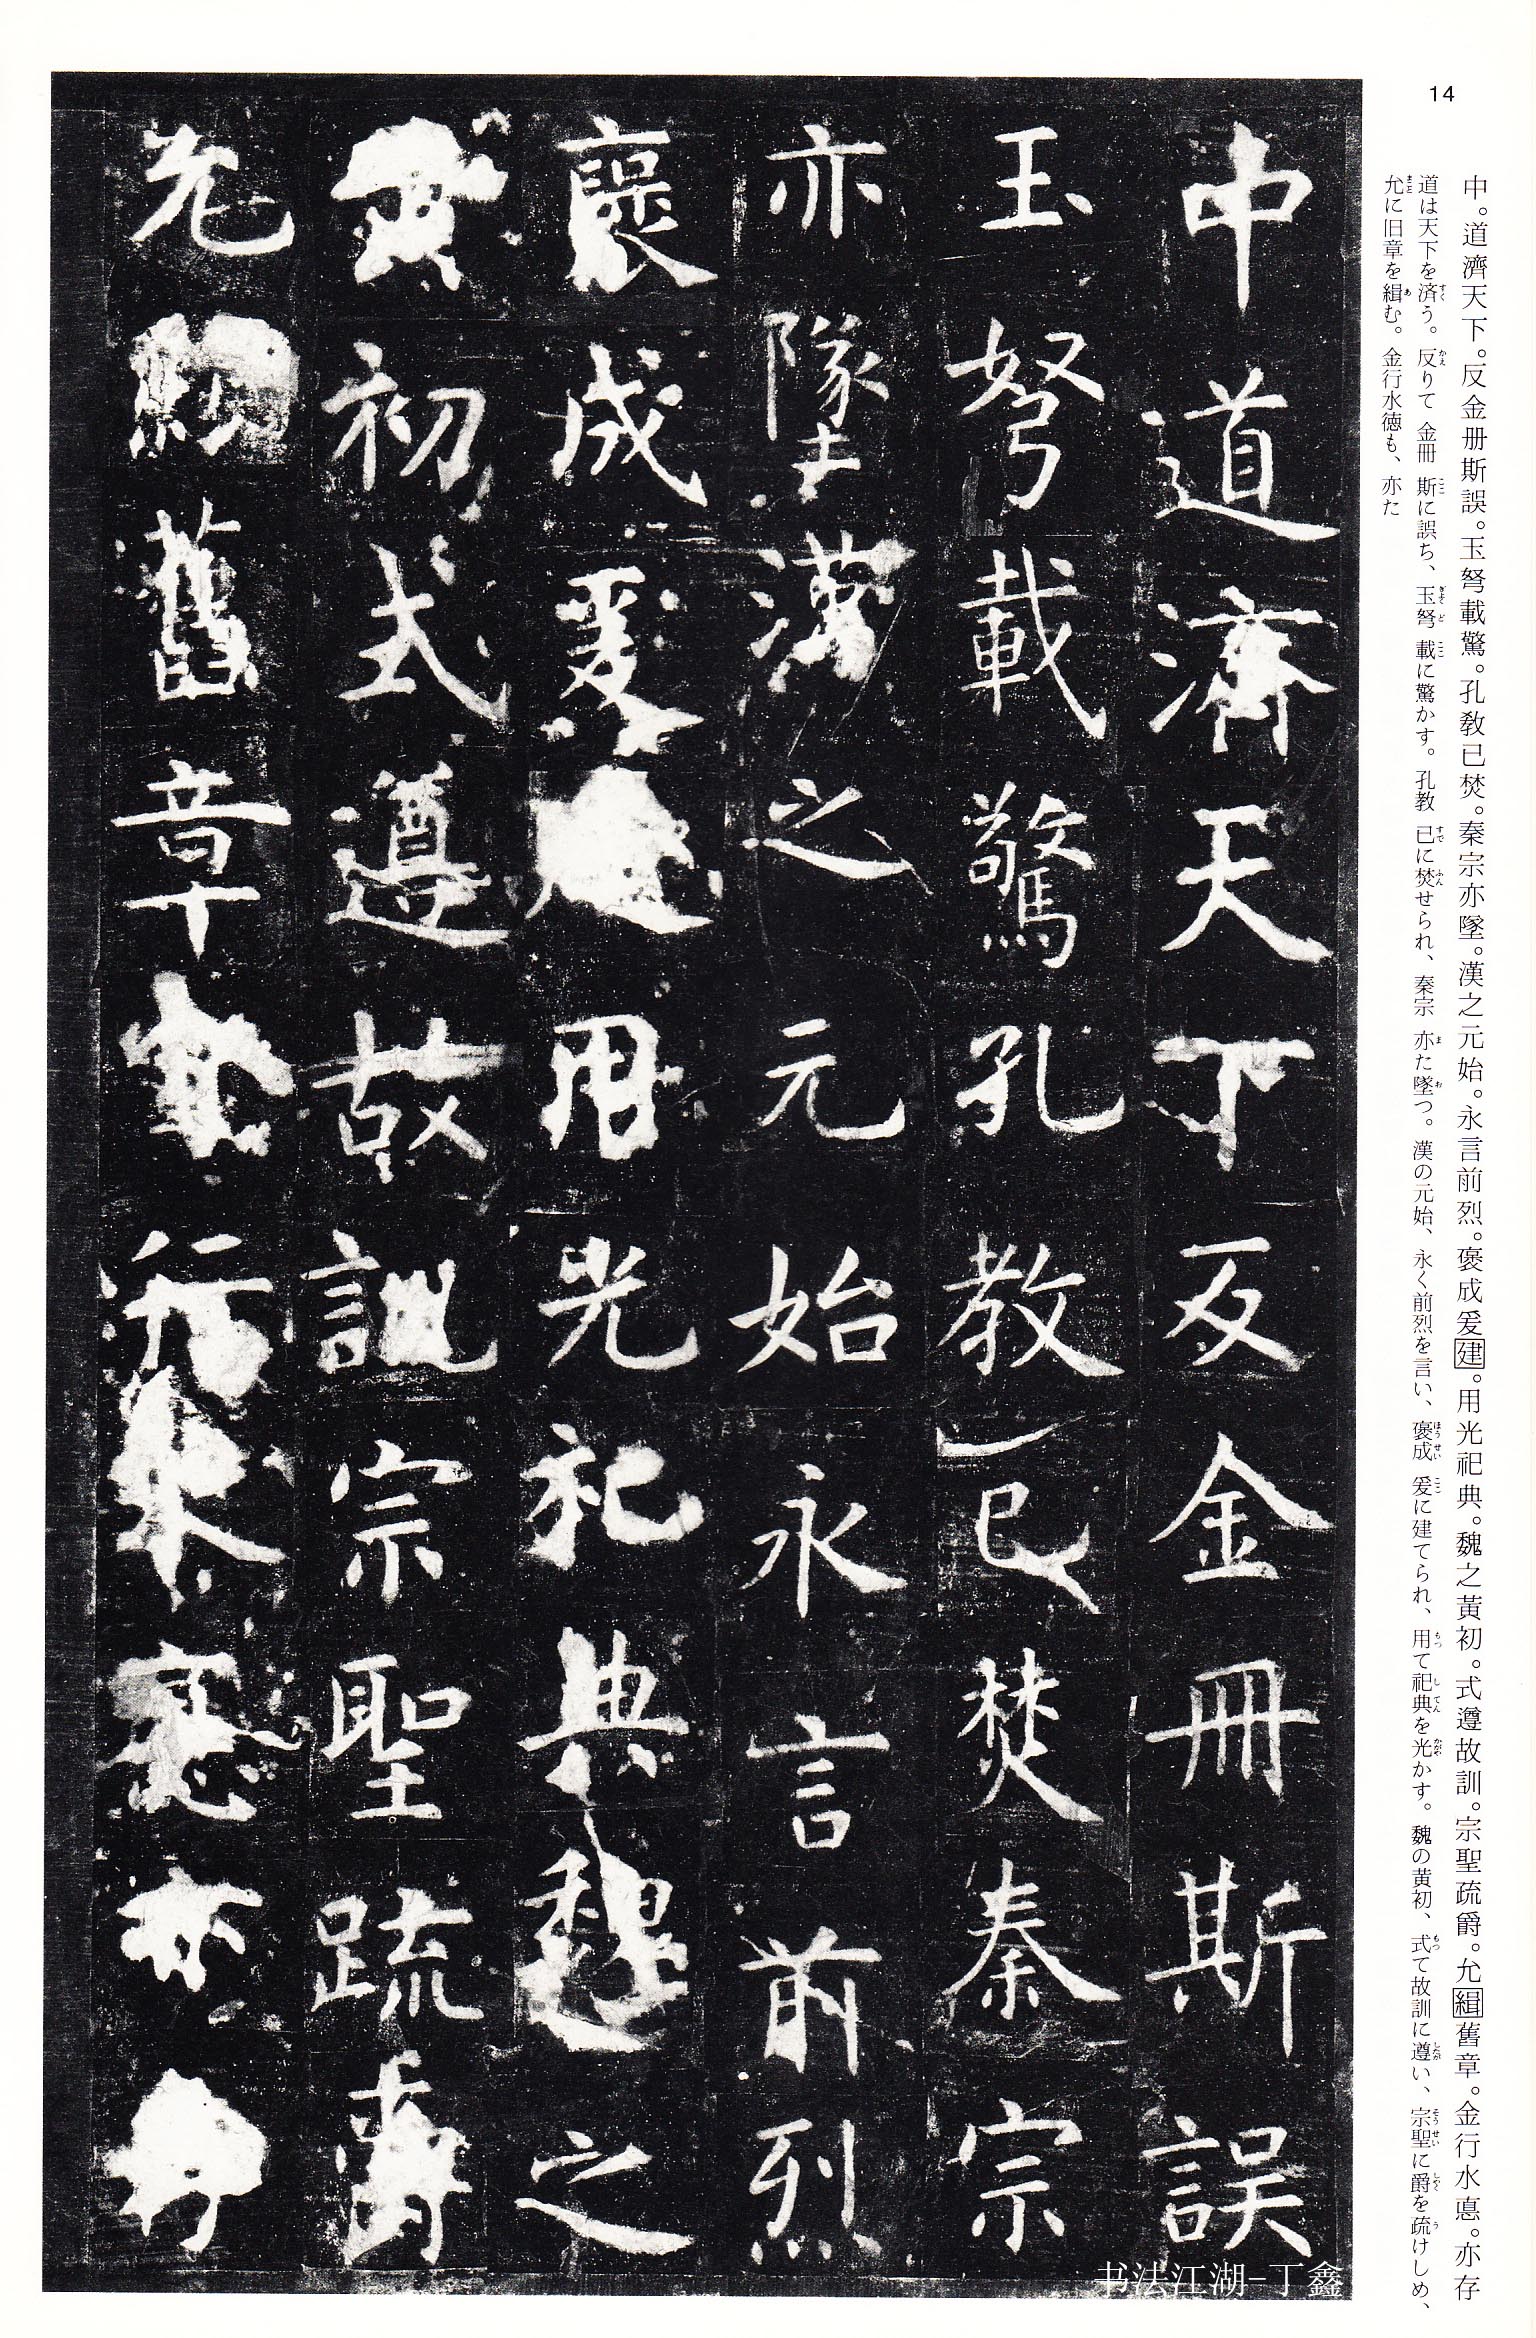 14
中。道濟天下。反金册斯誤。玉弩載驚。孔教已焚。秦宗亦墜。漢之元始。永言前烈。褒成爰建。用光祀典。魏之黃初。式遵故訓。宗聖疏爵。允緝舊章。金行水悳。亦存
道は天下を済う。反りて金冊斯に誤ち、玉弩載に驚かす。孔教已に焚せられ、秦宗亦た墜つ。漢の元始、永く前烈を言い、褒成爰に建てられ、用て祀典を光かす。魏の黄初、式て故訓に遵い、宗聖に爵を疏けしめ、
允に旧章を緝む。金行水徳も、亦た
中道濟天下反金冊斯誤
玉弩載驚孔教已焚秦宗
亦墜漢之元始永言前烈
褒成爰建用光祀典魏之
黃初式遵故訓宗聖疏爵
允緝舊章金行水悳亦存
书法江湖-丁鑫